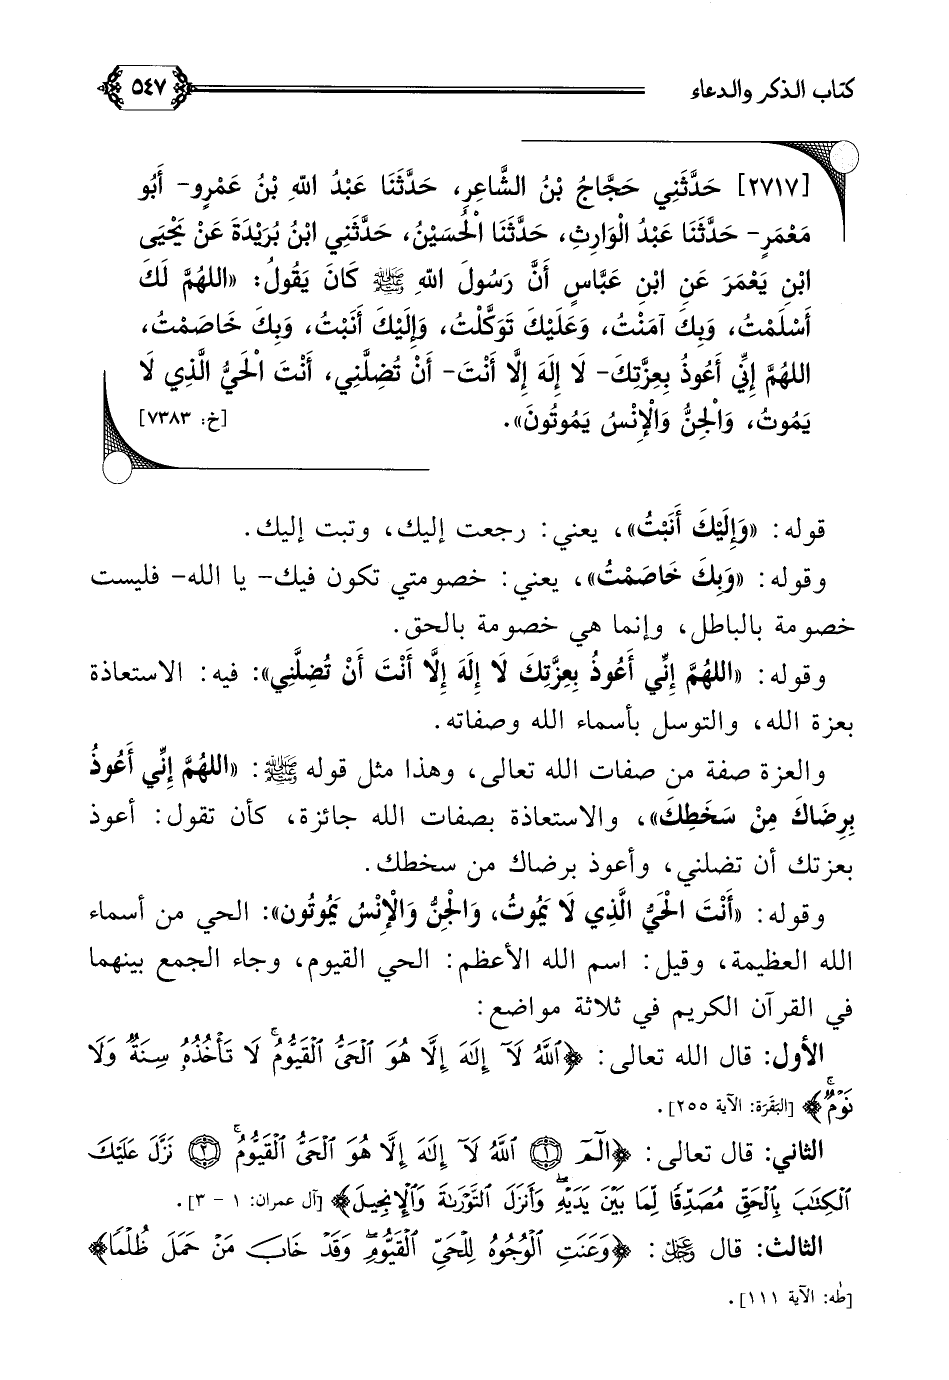 كتاب الذكر والدعاء
٥٤٧
[٢٧١٧] حَدَّثَنِي حَجَّاجُ بْنُ الشَّاعِرِ، حَدَّثَنَا عَبْدُ اللهِ بْنُ عَمْرٍو- أَبُو
مَعْمَرٍ- حَدَّثَنَا عَبْدُ الْوَارِثِ، حَدَّثَنَا الْحُسَيْنُ، حَدَّثَنِي ابْنُ بُرَيْدَةَ عَنْ يَحْيَى
ابْنِ يَعْمَرَ عَنِ ابْنِ عَبَّاسٍ أَنَّ رَسُولَ اللهِ ﷺ كَانَ يَقُولُ: «اللهُمَّ لَكَ
أَسْلَمْتُ، وَبِكَ آمَنْتُ، وَعَلَيْكَ تَوَكَّلْتُ، وَإِلَيْكَ أَنَبْتُ، وَبِكَ خَاصَمْتُ،
اللهُمَّ إِنِّي أَعُوذُ بِعِزَّتِكَ- لَا إِلَهَ إِلَّا أَنْتَ- أَنْ تُضِلَّنِي، أَنْتَ الْحَيُّ الَّذِي لَا
يَمُوتُ، وَالْجِنُّ وَالْإِنْسُ يَمُوتُونَ». [خ: ٧٣٨٣]
قوله: «وَإِلَيْكَ أَنَبْتُ»، يعني: رجعت إليك، وتبت إليك.
وقوله: «وَبِكَ خَاصَمْتُ»، يعني: خصومتي تكون فيك- يا الله- فليست
خصومة بالباطل، وإنما هي خصومة بالحق.
وقوله: «اللهُمَّ إِنِّي أَعُوذُ بِعِزَّتِكَ لَا إِلَهَ إِلَّا أَنْتَ أَنْ تُضِلَّنِي»: فيه: الاستعاذة
بعزة الله، والتوسل بأسماء الله وصفاته.
والعزة صفة من صفات الله تعالى، وهذا مثل قوله ﷺ: «اللهُمَّ إِنِّي أَعُوذُ
بِرِضَاكَ مِنْ سَخَطِكَ»، والاستعاذة بصفات الله جائزة، كأن تقول: أعوذ
بعزتك أن تضلني، وأعوذ برضاك من سخطك.
وقوله: «أَنْتَ الْحَيُّ الَّذِي لَا يَمُوتُ، وَالْجِنُّ وَالْإِنْسُ يَمُوتُون»: الحي من أسماء
الله العظيمة، وقيل: اسم الله الأعظم: الحي القيوم، وجاء الجمع بينهما
في القرآن الكريم في ثلاثة مواضع:
الأول: قال الله تعالى: ﴿ٱللَّهُ لَآ إِلَٰهَ إِلَّا هُوَ ٱلْحَىُّ ٱلْقَيُّومُ ۚ لَا تَأْخُذُهُۥ سِنَةٌ وَلَا
نَوْمٌ ۚ﴾ [البَقَرَة: الآية ٢٥٥].
الثاني: قال تعالى: ﴿الٓمٓ ۝١ ٱللَّهُ لَآ إِلَٰهَ إِلَّا هُوَ ٱلْحَىُّ ٱلْقَيُّومُ ۚ ۝٢ نَزَّلَ عَلَيْكَ
ٱلْكِتَٰبَ بِٱلْحَقِّ مُصَدِّقًا لِّمَا بَيْنَ يَدَيْهِ ۖ وَأَنزَلَ ٱلتَّوْرَىٰةَ وَٱلْإِنجِيلَ﴾ [آل عمران: ١ - ٣].
الثالث: قال عز وجل: ﴿وَعَنَتِ ٱلْوُجُوهُ لِلْحَىِّ ٱلْقَيُّومِ ۖ وَقَدْ خَابَ مَنْ حَمَلَ ظُلْمًا﴾
[طه: الآية ١١١].